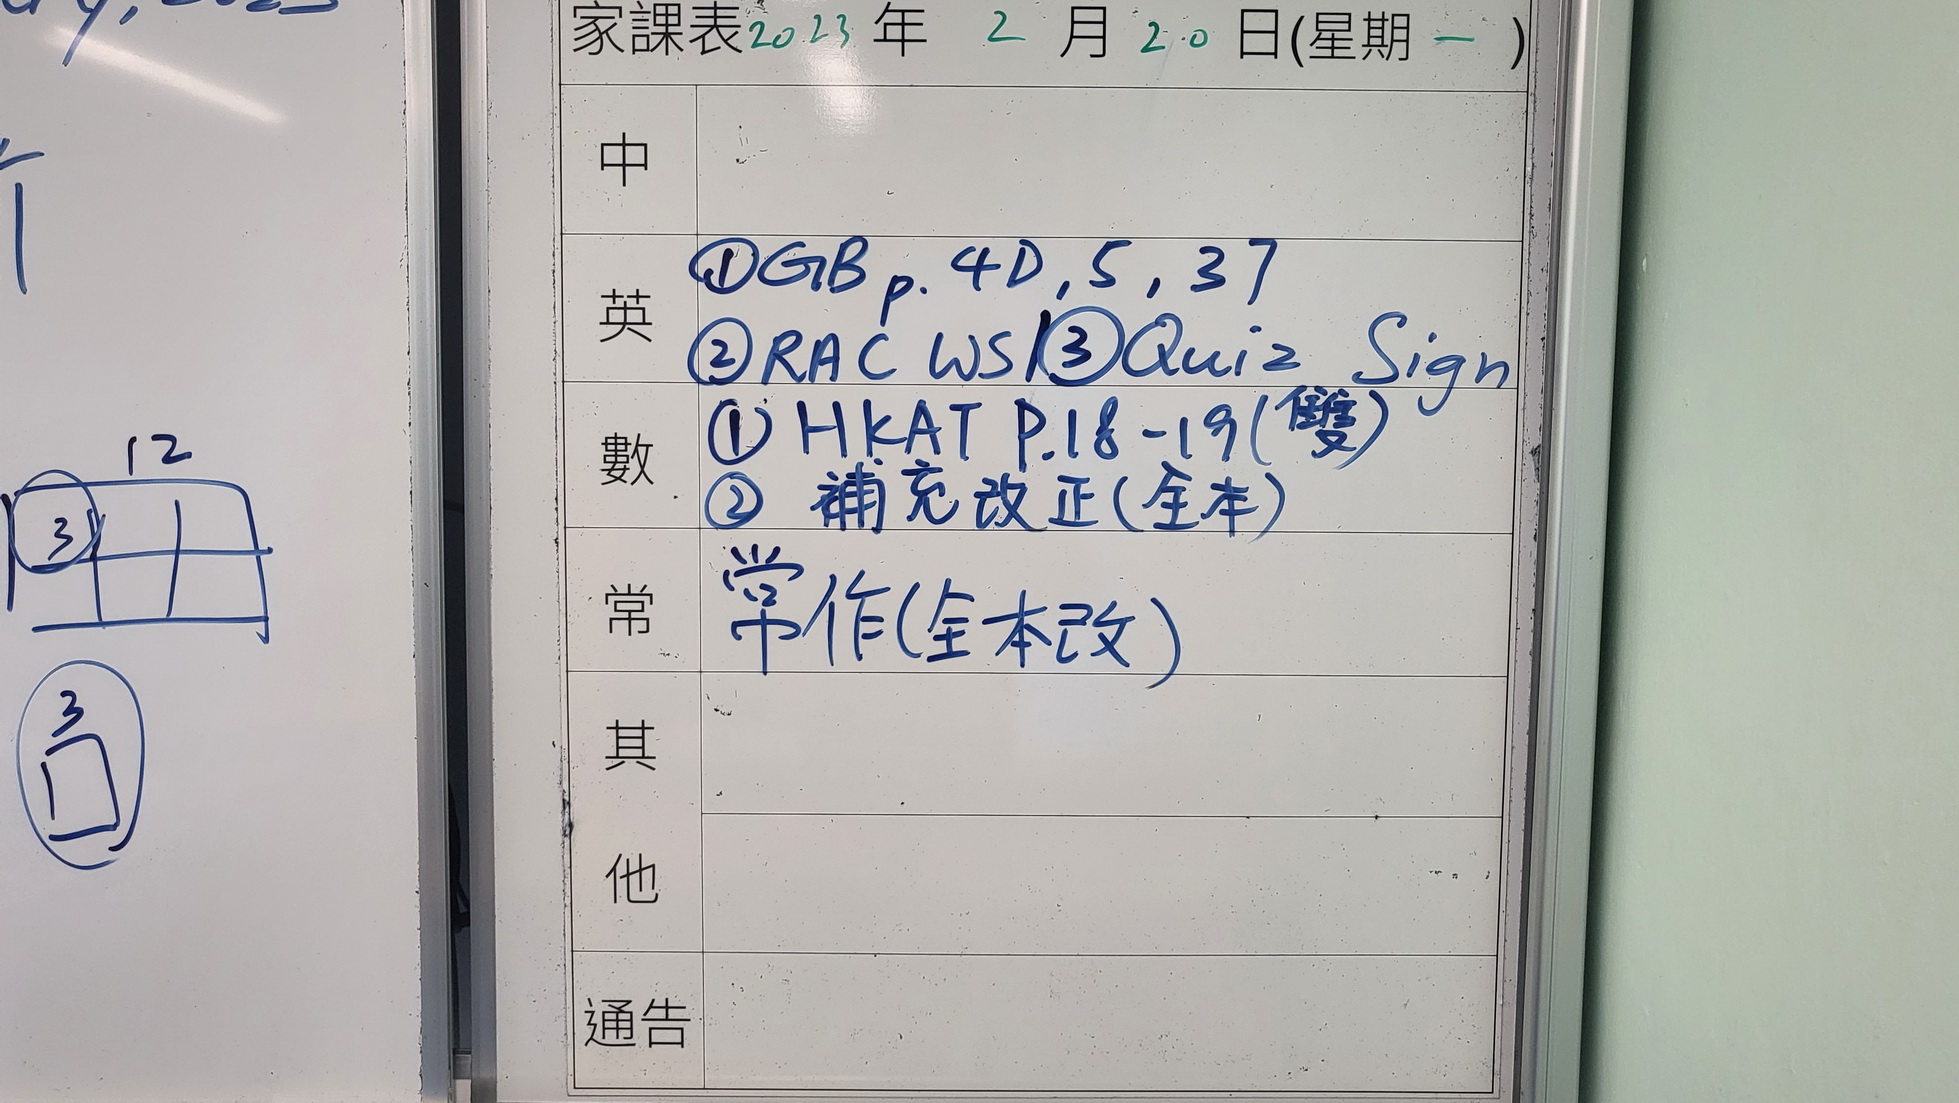 2023
12
3
3
家課表2023年 2月20日(星期一)
中
英
①GB p. 4D, 5, 37
②RAC WS1 ③Quiz Sign
數
① HKAT P.18-19(雙)
② 補充改正(全本)
常
常作(全本改)
其
他
通告